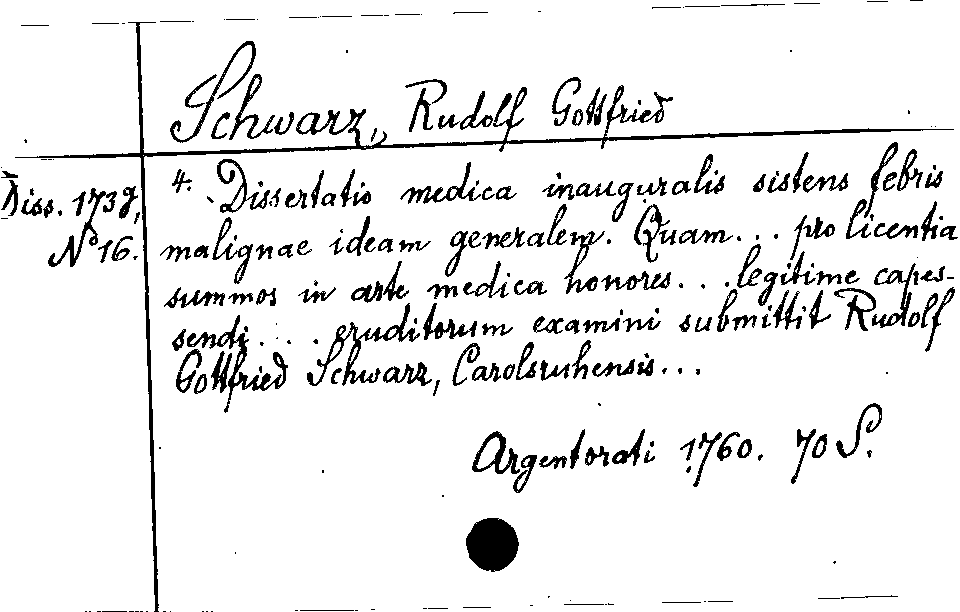 Schwarz, Rudolf Gottfried
Diss. 173g,
No 16.
4. Dissertatio medica inauguralis sistens febris
malignae ideam generalem. Quam... pro licentia
summos in arte medica honores... legitime capes-
sendi.... eruditorum examini submittit Rudolf
Gottfried Schwarz, Carolsruhensis...
Argentorati 1760. 70 S.